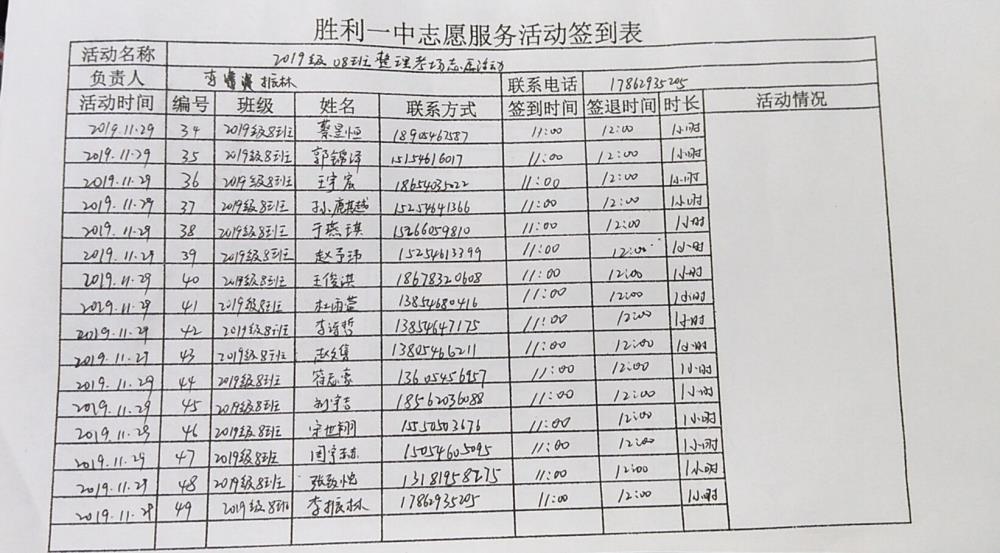 胜利一中志愿服务活动签到表
活动名称 2019级08班整理考场志愿活动
负责人 李 振林 联系电话 17862935205
活动时间 编号 班级 姓名 联系方式 签到时间 签退时间 时长 活动情况
2019.11.29 34 2019级8班 蔡昱恒 18905462587 11:00 12:00 1小时
2019.11.29 35 2019级8班 郭锦泽 15154616017 11:00 12:00 1小时
2019.11.29 36 2019级8班 王宇宸 18654035022 11:00 12:00 1小时
2019.11.29 37 2019级8班 孙麒越 15254641366 11:00 12:00 1小时
2019.11.29 38 2019级8班 于燕琪 15266059810 11:00 12:00 1小时
2019.11.29 39 2019级8班 赵予玮 15254613399 11:00 12:00 1小时
2019.11.29 40 2019级8班 王俊淇 18678320608 11:00 12:00 1小时
2019.11.29 41 2019级8班 杜雨萱 13854680416 11:00 12:00 1小时
2019.11.29 42 2019级8班 李诗哲 13854647175 11:00 12:00 1小时
2019.11.29 43 2019级8班 13805466211 11:00 12:00 1小时
2019.11.29 44 2019级8班 13605456957 11:00 12:00 1小时
2019.11.29 45 2019级8班 刘宇吉 18562036088 11:00 12:00 1小时
2019.11.29 46 2019级8班 宋世翔 1550503676 11:00 12:00 1小时
2019.11.29 47 2019级8班 15054605095 11:00 12:00 1小时
2019.11.29 48 2019级8班 张 13181958275 11:00 12:00 1小时
2019.11.29 49 2019级8班 李振林 17862935205 11:00 12:00 1小时